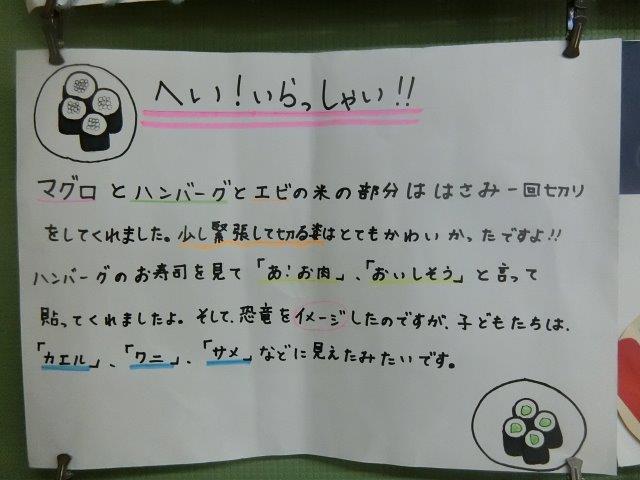 へい！いらっしゃい！！
マグロとハンバーグとエビの米の部分ははさみ一回切り
をしてくれました。少し緊張して切る姿はとてもかわいかったですよ！！
ハンバーグのお寿司を見て「あ！お肉」、「おいしそう」と言って
貼ってくれましたよ。そして、恐竜をイメージしたのですが、子どもたちは、
「カエル」、「ワニ」、「サメ」などに見えたみたいです。